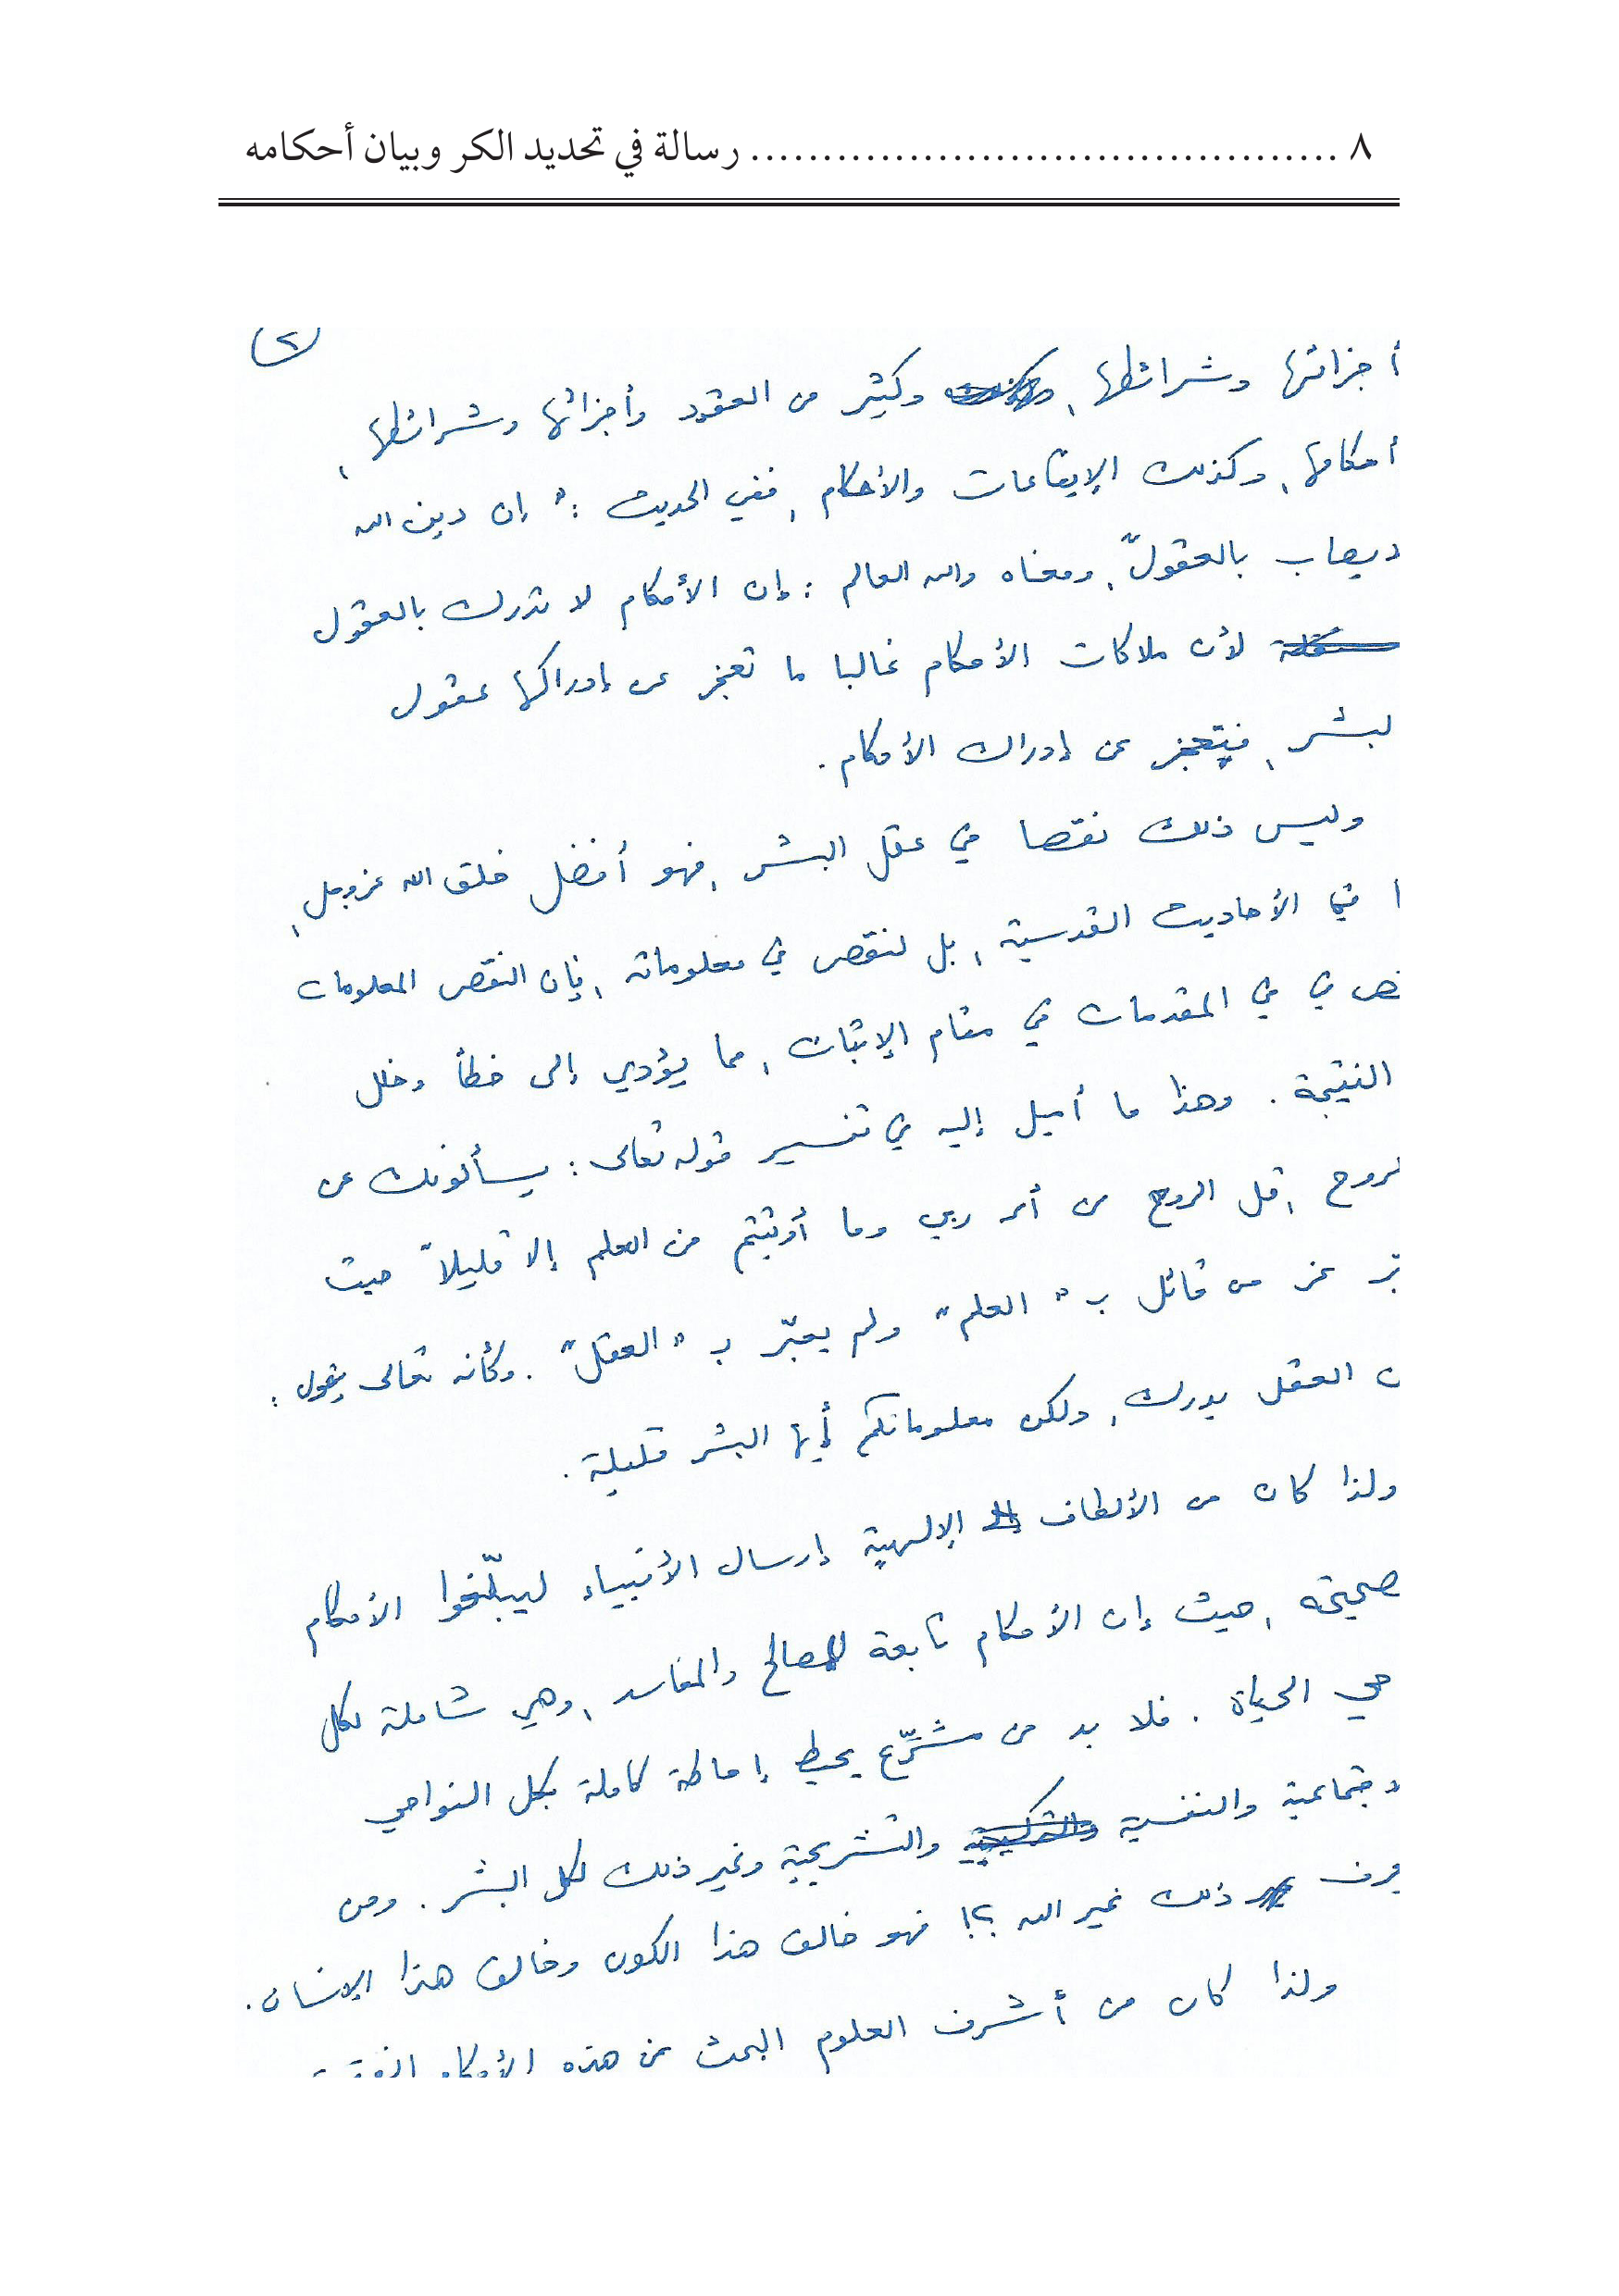 ٨ ......................................... رسالة في تحديد الكر وبيان أحكامه
(٢)
أجزائها وشرائطها، وكثير من العقود وأجزائها وشرائطها،
أحكامها، وكذلك الإيقاعات والأحكام، ففي الحديث : " إن دين الله
يصاب بالعقول"، ومعناه والله العالم : إن الأحكام لا تدرك بالعقول
لأن ملاكات الأحكام غالبا ما تعجز عن إدراكها عقول
لبشر، فتعجز عن إدراك الأحكام .
وليس ذلك نقصا في عقل البشر، فهو أفضل خلق الله عزوجل،
ا في الأحاديث القدسية، بل لنقص في معلوماته، فإن النقص المعلومات
في المقدمات في مقام الإثبات، مما يؤدي إلى خطأ وخلل
النتيجة . وهذا ما أميل إليه في تفسير قوله تعالى : يسألونك عن
لروح، قل الروح من أمر ربي وما أوتيتم من العلم إلا قليلا" حيث
بّر عز من قائل بـ " العلم " ولم يعبّر بـ " العقل " . وكأنه تعالى يقول :
ن العقل يدرك، ولكن معلوماتكم أيها البشر قليلة .
ولذا كان من الألطاف الإلهية إرسال الأنبياء ليبلّغوا الأحكام
صحيحة، حيث إن الأحكام تابعة للمصالح والمفاسد، وهي شاملة لكل
حي الحياة . فلا بد من مشرّع يحيط إحاطة كاملة بكل النواحي
جتماعية والنفسية والتشريحية وغير ذلك لكل البشر . ومن
عرف ذلك غير الله ؟! فهو خالق هذا الكون وخالق هذا الإنسان .
ولذا كان من أشرف العلوم البحث عن هذه الأحكام